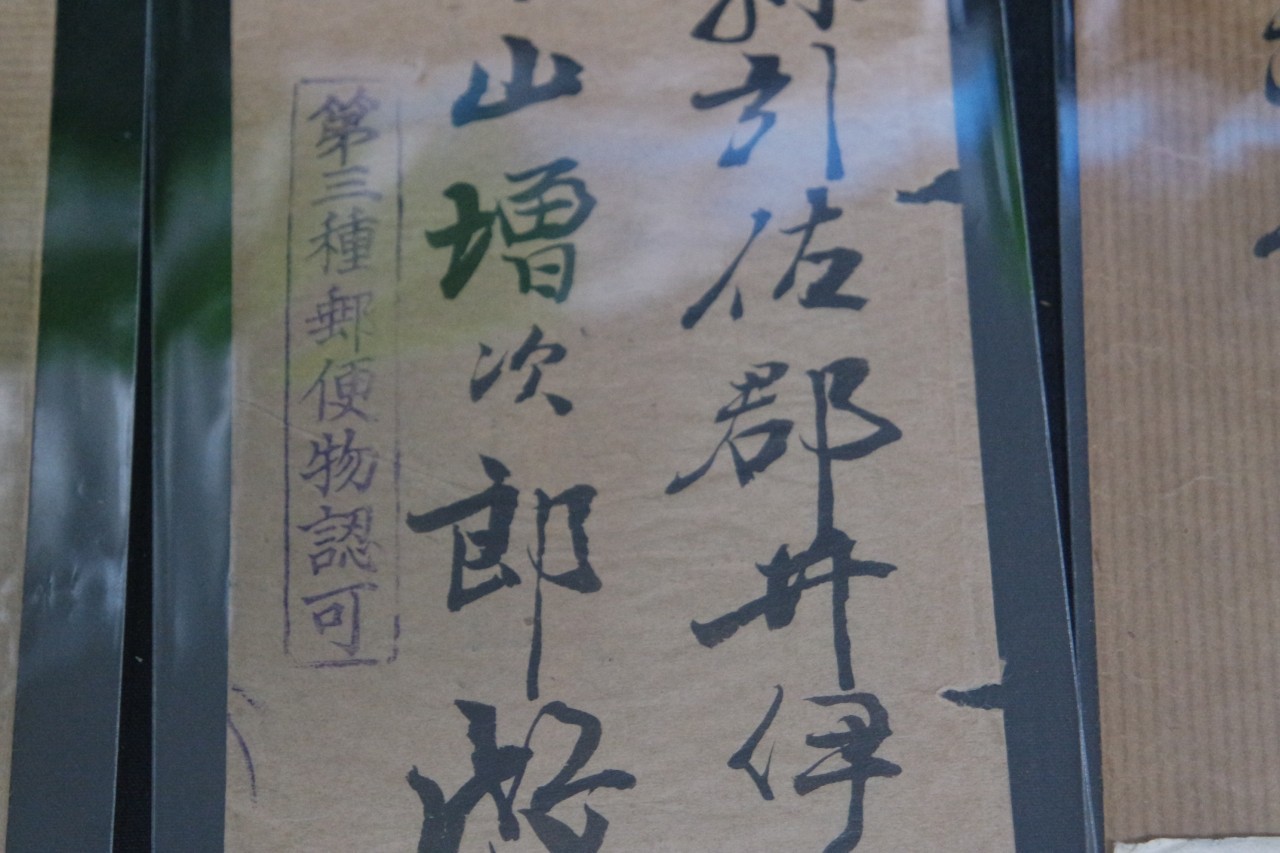 引佐郡井伊
山増次郎殿
第三種郵便物認可